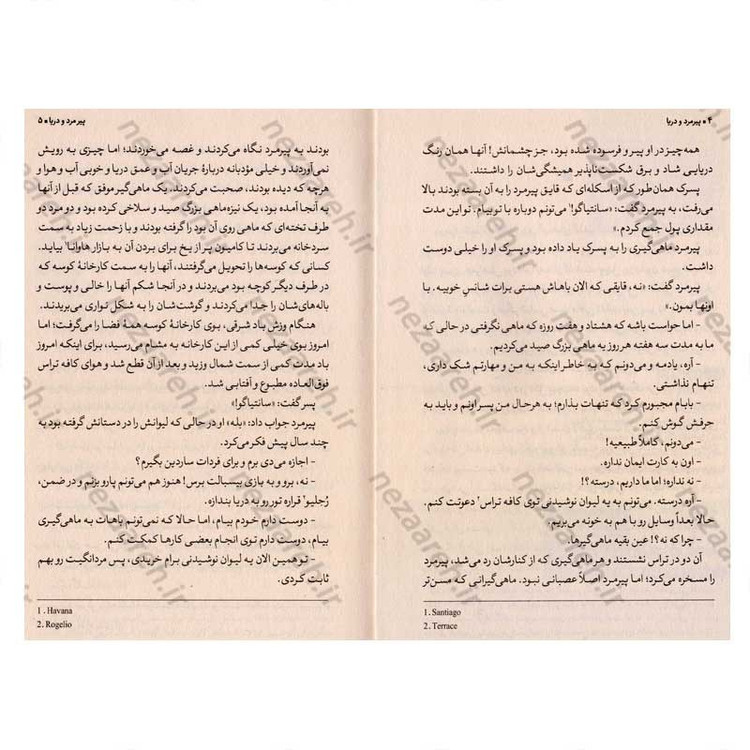 ۴ ▪ پیرمرد و دریا
همه‌چیز در او پیر و فرسوده شده بود، جز چشمانش! آنها همان رنگ
دریایی شاد و برق شکست‌ناپذیر همیشگی‌شان را داشتند.
پسرک همان‌طور که از اسکله‌ای که قایق پیرمرد را به آن بسته بودند بالا
می‌رفت، به پیرمرد گفت: «سانتیاگو!¹ می‌تونم دوباره با تو بیام. تو این مدت
مقداری پول جمع کردم.»
پیرمرد ماهی‌گیری را به پسرک یاد داده بود و پسرک او را خیلی دوست
داشت.
پیرمرد گفت: «نه، قایقی که الان باهاش هستی برات شانسِ خوبیه. با
اونها بمون.»
- اما حواست باشه که هشتاد و هفت روزه که ماهی نگرفتی در حالی که
ما به مدت سه هفته هر روز یه ماهی بزرگ صید می‌کردیم.
- آره، یادمه و می‌دونم که به خاطر اینکه به من و مهارتم شک داری،
تنهام نذاشتی.
- بابام مجبورم کرد که تنهات بذارم؛ به هرحال من پسر اونم و باید به
حرفش گوش کنم.
- می‌دونم، کاملاً طبیعیه!
- اون به کارت ایمان نداره.
- نه نداره؛ اما ما داریم، درسته؟!
- آره درسته. می‌تونم به یه لیوان نوشیدنی توی کافه تراس² دعوتت کنم.
حالا بعداً وسایل رو با هم به خونه می‌بریم.
- چرا که نه؟! عین بقیه ماهی‌گیرها.
آن دو در تراس نشستند و هر ماهی‌گیری که از کنارشان رد می‌شد، پیرمرد
را مسخره می‌کرد؛ اما پیرمرد اصلاً عصبانی نبود. ماهی‌گیرانی که مسن‌تر
1. Santiago
2. Terrace
پیرمرد و دریا ▪ ۵
بودند به پیرمرد نگاه می‌کردند و غصه می‌خوردند؛ اما چیزی به رویش
نمی‌آوردند و خیلی مؤدبانه دربارهٔ جریان آب و عمق دریا و خوبی آب و هوا و
هرچه که دیده بودند، صحبت می‌کردند. یک ماهی‌گیر موفق که قبل از آنها
به آنجا آمده بود، یک نیزه‌ماهی بزرگ صید و سلاخی کرده بود و دو مرد دو
طرف تخته‌ای که ماهی روی آن بود را گرفته بودند و با زحمت زیاد به سمت
سردخانه می‌بردند تا کامیون پر از یخ برای بردن آن به بازار هاوانا¹ بیاید.
کسانی که کوسه‌ها را تحویل می‌گرفتند، آنها را به سمت کارخانهٔ کوسه که
در طرف دیگر کوچه بود می‌بردند و در آنجا شکم آنها را خالی و پوست و
باله‌های‌شان را جدا می‌کردند و گوشت‌شان را به شکل نواری می‌بریدند.
هنگام وزش باد شرقی، بوی کارخانهٔ کوسه همهٔ فضا را می‌گرفت؛ اما
امروز بوی خیلی کمی از این کارخانه به مشام می‌رسید، برای اینکه امروز
باد مدت کمی از سمت شمال وزید و بعد از آن قطع شد و هوای کافه تراس
فوق‌العاده مطبوع و آفتابی شد.
پسر گفت: «سانتیاگو!»
پیرمرد جواب داد: «بله» او در حالی که لیوانش را در دستانش گرفته بود به
چند سال پیش فکر می‌کرد.
- اجازه می‌دی برم و برای فردات ساردین بگیرم؟
- نه، برو و به بازی بیسبالت برس! هنوز هم می‌تونم پارو بزنم و در ضمن،
رُجلیو² قراره تور رو به دریا بندازه.
- دوست دارم خودم بیام، اما حالا که نمی‌تونم باهات به ماهی‌گیری
بیام، دوست دارم توی انجام بعضی کارها کمکت کنم.
- تو همین الان یه لیوان نوشیدنی برام خریدی، پس مردانگیت رو بهم
ثابت کردی.
1 . Havana
2. Rogelio
nezaareh.ir